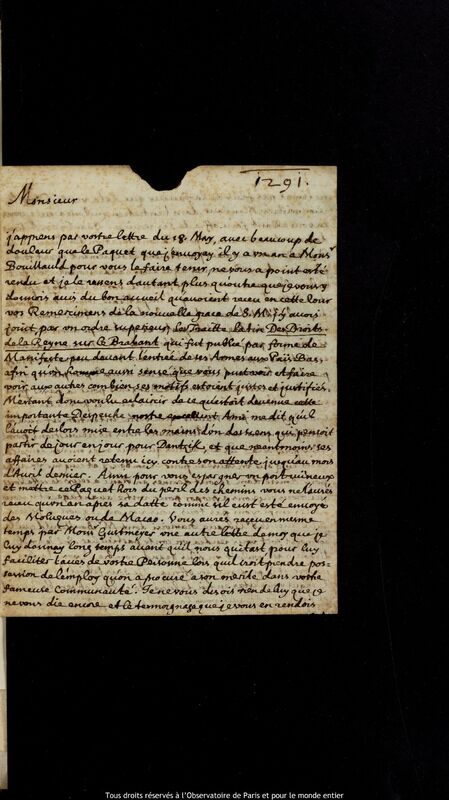 1291.
Monsieur
j'apprens par vostre lettre du 18. May, avec beaucoup de
douleur que le Paquet que j'envoyay il y a un an a Monsr
Bouillauld pour vous le faire tenir, ne vous a point esté
rendu et je le ressens d'autant plus qu'outre que je vous y
donnois avis du bon accueil qu'avoient receu en cette Cour
vos Remerciemens de la nouvelle grace de S. M. j'y avois
joint par un ordre superieur les Traitté latin Des Droits
de la Reyne sur le Brabant qui fut publié par forme de
Manifeste peu devant l'entrée de ses Armes aux Païs Bas,
afin qu'un homme aussi sensé que vous pust voir et faire
voir aux autres combien ses motifs estoient justes et justifiés.
M'estant donc voulu esclaircir de ce qu'estoit devenue cette
importante Depesche nostre excellent Ami me dit qu'il
l'avoit deslors mise entre les mains d'un des siens qui pensoit
partir de jour en jour pour Dantzik, et que neantmoins ses
affaires avoient retenu icy contre son attente jusqu'au mois
d'Avril dernier. Ainsi pour vous espargner un port ruineux
et mettre ce Paquet hors du peril des chemins vous ne l'aurés
receu qu'un an aprés sa datte comme s'il eust esté envoyé
des Moluques ou de Macao. Vous aurés receu en mesme
temps par Monsr Gustmeyer une autre lettre de moy que je
luy donnay long temps avant qu'il nous quitast pour luy
faciliter l'accés de vostre Personne lors qu'il iroit prendre pos=
session de l'employ qu'on a procuré a son merite dans vostre
fameuse Communauté. Je ne vous disois rien de luy que je
ne vous die encore et le temoignage que je vous en rendois
Tous droits réservés à l'Observatoire de Paris et pour le monde entier